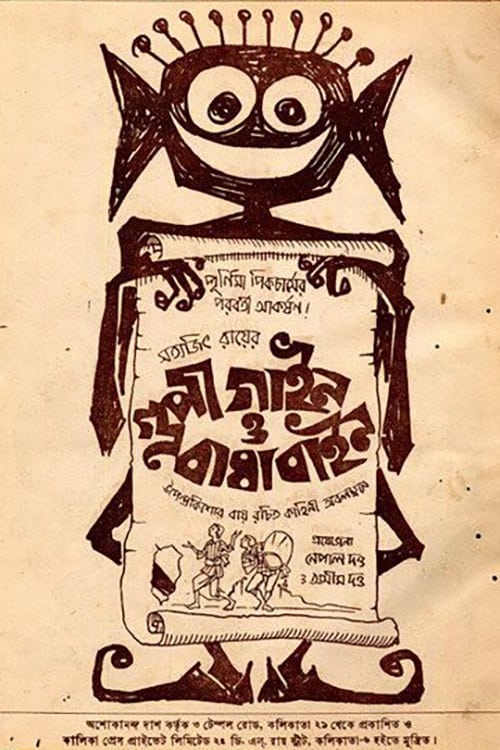 পূর্ণিমা পিকচার্সের
পরবর্তী আকর্ষন!
সত্যজিৎ রায়ের
গুপী গাইন
ও
বাঘা বাইন
উপেন্দ্রকিশোর রায় রচিত কাহিনী অবলম্বনে
প্রযোজনা
নেপাল দত্ত
ও অসীম দত্ত
অশোকানন্দ দাশ কর্তৃক ৩ টেম্পল রোড, কলিকাতা ২৯ থেকে প্রকাশিত ও
কালিকা প্রেস প্রাইভেট লিমিটেড ২৫ ডি. এল. রায় স্ট্রীট, কলিকাতা-৬ হইতে মুদ্রিত।